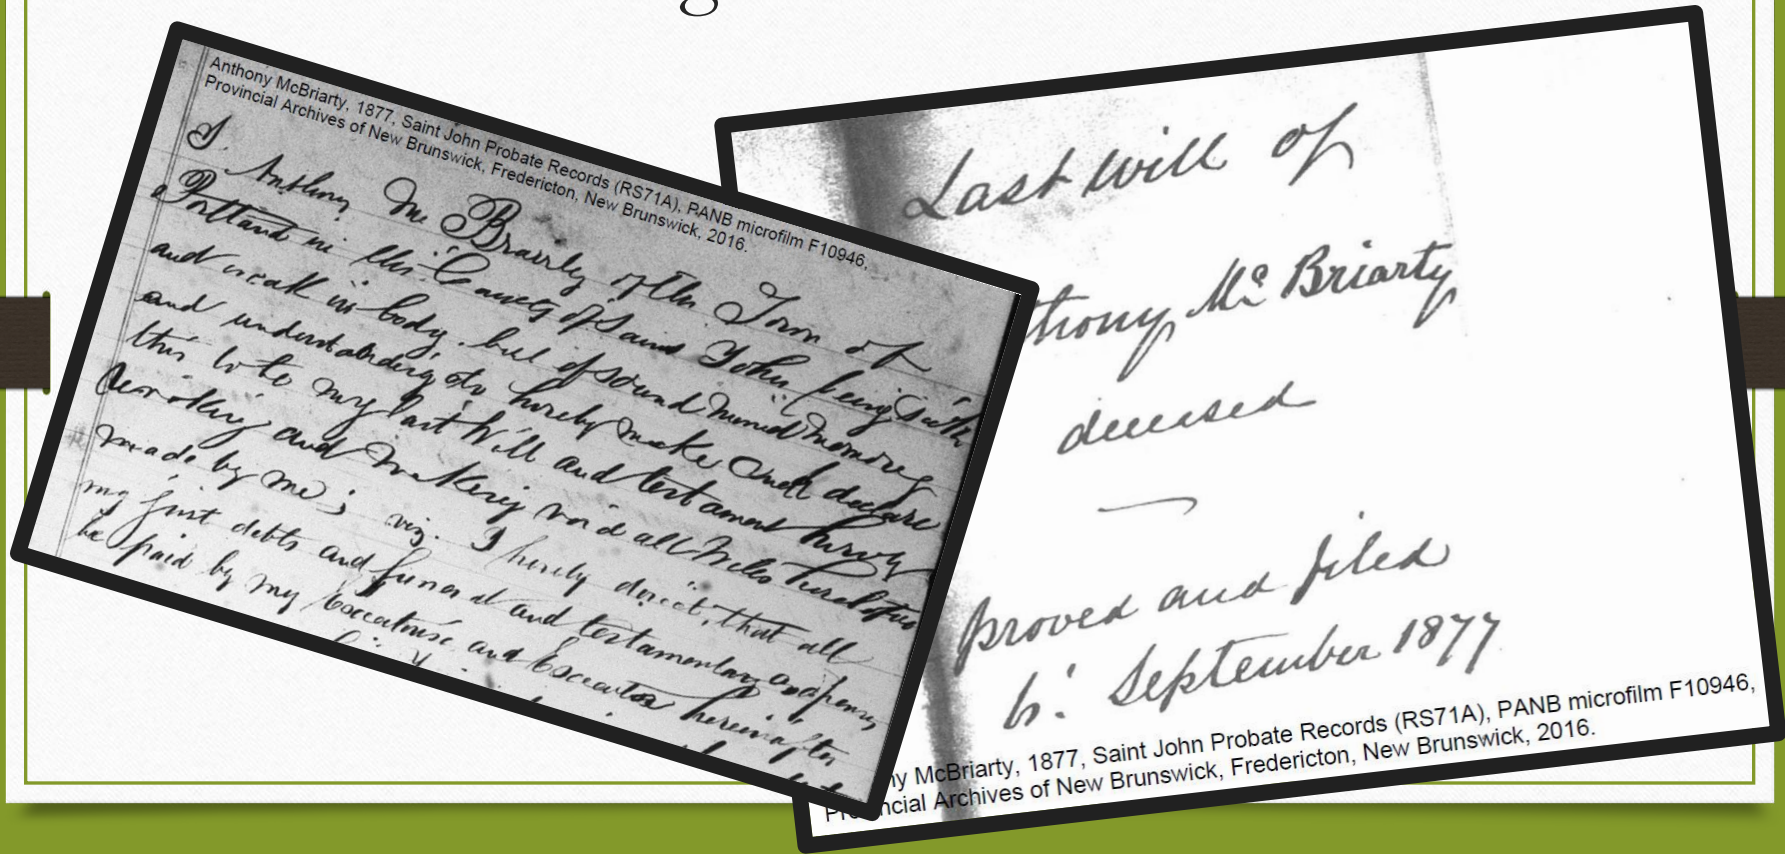 Anthony McBriarty, 1877, Saint John Probate Records (RS71A), PANB microfilm F10946,
Provincial Archives of New Brunswick, Fredericton, New Brunswick, 2016.
I. Anthony Mc Briarty of the Town of
Portland in the County of Saint John being sick
and weak in body, but of sound mind memory
and understanding do hereby make and declare
this to be my last Will and testament hereby
revoking and making void all Wills heretofore
made by me; viz. I hereby direct, that all
my just debts and funeral and testamentary expenses
be paid by my Executrix and Executor hereinafter
Last will of
thony Mc Briarty
deceased
proved and filed
6. September 1877
ny McBriarty, 1877, Saint John Probate Records (RS71A), PANB microfilm F10946,
Provincial Archives of New Brunswick, Fredericton, New Brunswick, 2016.